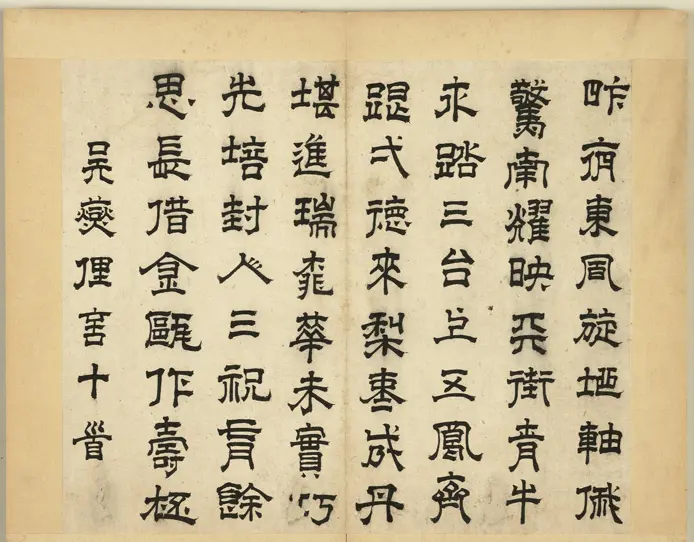 昨夜東周旋地軸俄
驚南耀映天街青牛
永踏三台上五鳳齊
跟弌德來梨棗成丹
堪進瑞桃華未實巧
先培封人三祝有餘
思長借金甌作壽桮
吳爕俚言十首